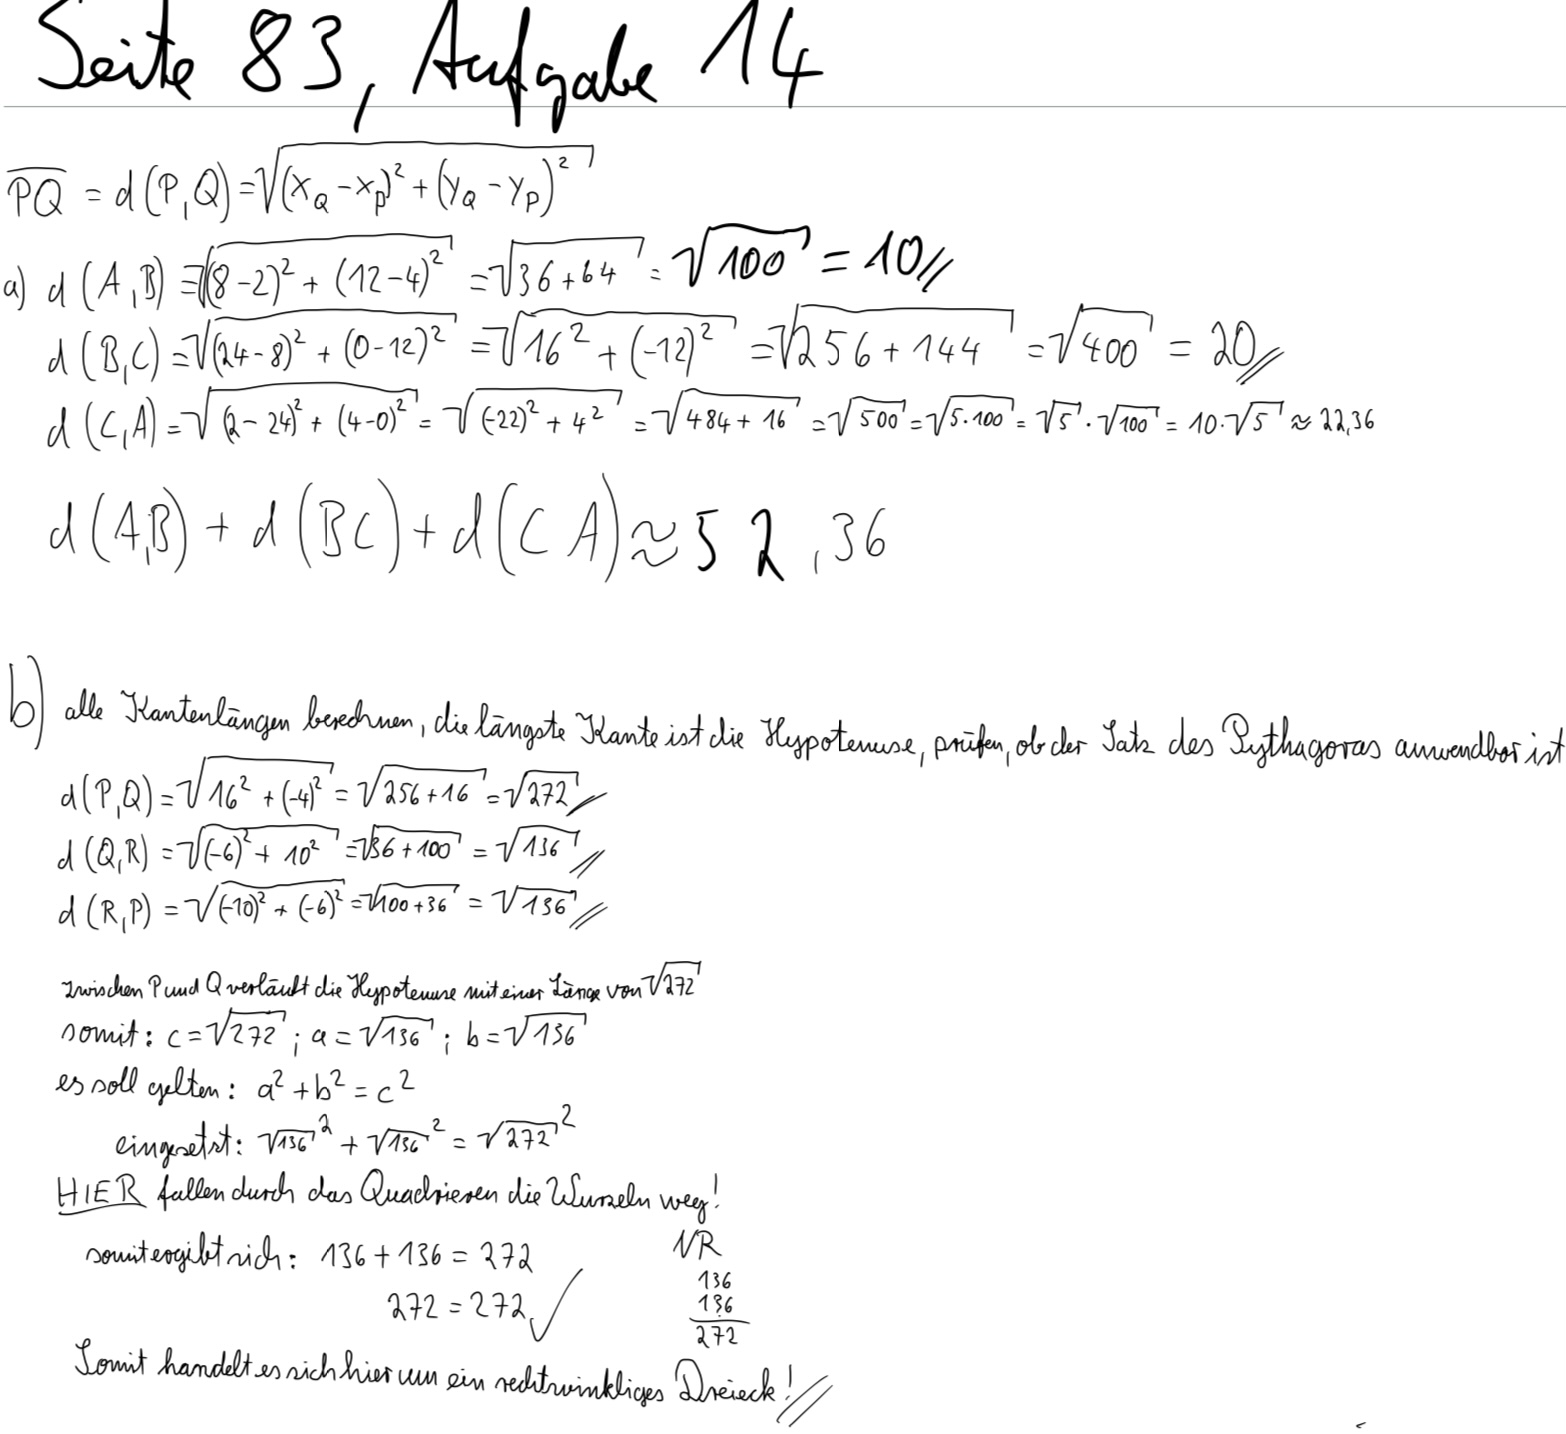 Seite 83, Aufgabe 14
PQ = d(P,Q) = √((x_Q - x_P)² + (y_Q - y_P)²)
a) d(A,B) = √((8-2)² + (12-4)²) = √(36+64) = √100 = 10
d(B,C) = √((24-8)² + (0-12)²) = √(16² + (-12)²) = √(256+144) = √400 = 20
d(C,A) = √((2-24)² + (4-0)²) = √((-22)² + 4²) = √(484+16) = √500 = √(5·100) = √5 · √100 = 10·√5 ≈ 22,36
d(A,B) + d(BC) + d(CA) ≈ 52,36
b) alle Kantenlängen berechnen, die längste Kante ist die Hypotenuse, prüfen, ob der Satz des Pythagoras anwendbar ist
d(P,Q) = √(16² + (-4)²) = √(256+16) = √272
d(Q,R) = √((-6)² + 10²) = √(36+100) = √136
d(R,P) = √((-10)² + (-6)²) = √(100+36) = √136
zwischen P und Q verläuft die Hypotenuse mit einer Länge von √272
somit: c = √272 ; a = √136 ; b = √136
es soll gelten: a² + b² = c²
eingesetzt: √136² + √136² = √272²
HIER fallen durch das Quadrieren die Wurzeln weg!
somit ergibt sich: 136 + 136 = 272
272 = 272 ✓
NR
136
136
272
Somit handelt es sich hier um ein rechtwinkliges Dreieck!